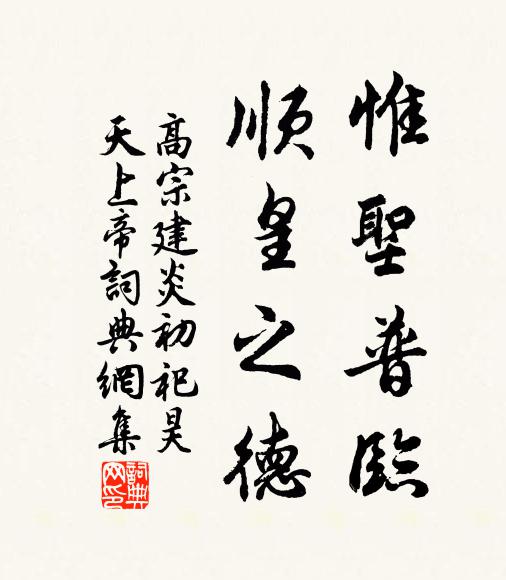 惟聖普臨
順皇之德
高宗建炎初祀昊
天上帝詞典網集
詞典網印